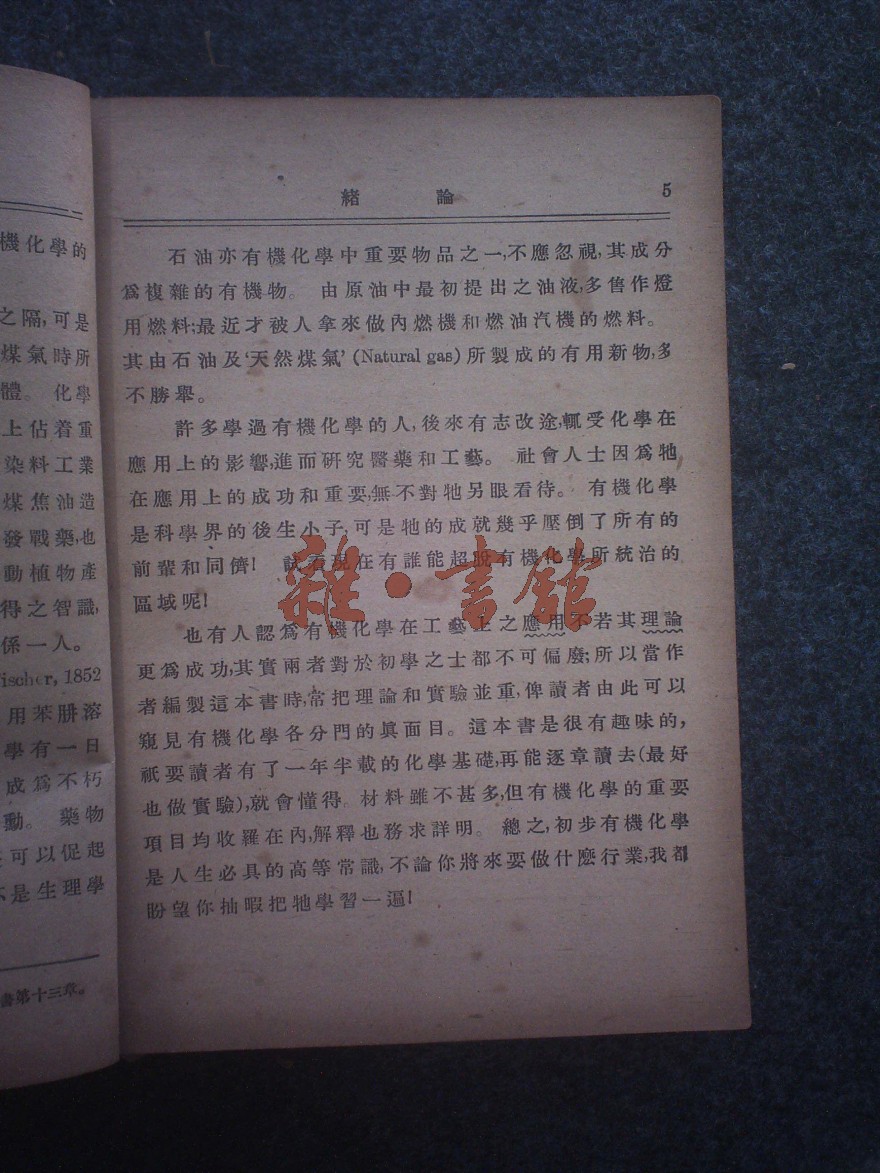 機化學的
之隔,可是
煤氣時所
體。 化學
上佔着重
染料工業
煤焦油造
發戰藥,也
動植物產
得之智識,
係一人。
ischer, 1852
用苯肼溶
學有一日
成爲不朽
動。 藥物
可以促起
是生理學
書第十三章。
緒 論 5
石油亦有機化學中重要物品之一,不應忽視,其成分
爲複雜的有機物。 由原油中最初提出之油液,多售作燈
用燃料;最近才被人拿來做內燃機和燃油汽機的燃料。
其由石油及‘天然煤氣’(Natural gas)所製成的有用新物,多
不勝舉。
許多學過有機化學的人,後來有志改途,輒受化學在
應用上的影響,進而研究醫藥和工藝。 社會人士因爲牠
在應用上的成功和重要,無不對牠另眼看待。 有機化學
是科學界的後生小子,可是牠的成就幾乎壓倒了所有的
前輩和同儕! 試看現在有誰能超脫有機化學所統治的
區域呢!
也有人認爲有機化學在工藝上之應用不若其理論
更爲成功,其實兩者對於初學之士都不可偏廢;所以當作
者編製這本書時,常把理論和實驗並重,俾讀者由此可以
窺見有機化學各分門的眞面目。這本書是很有趣味的,
祇要讀者有了一年半載的化學基礎,再能逐章讀去(最好
也做實驗),就會懂得。材料雖不甚多,但有機化學的重要
項目均收羅在內,解釋也務求詳明。 總之,初步有機化學
是人生必具的高等常識,不論你將來要做什麼行業,我都
盼望你抽暇把牠學習一遍!
雜·書館